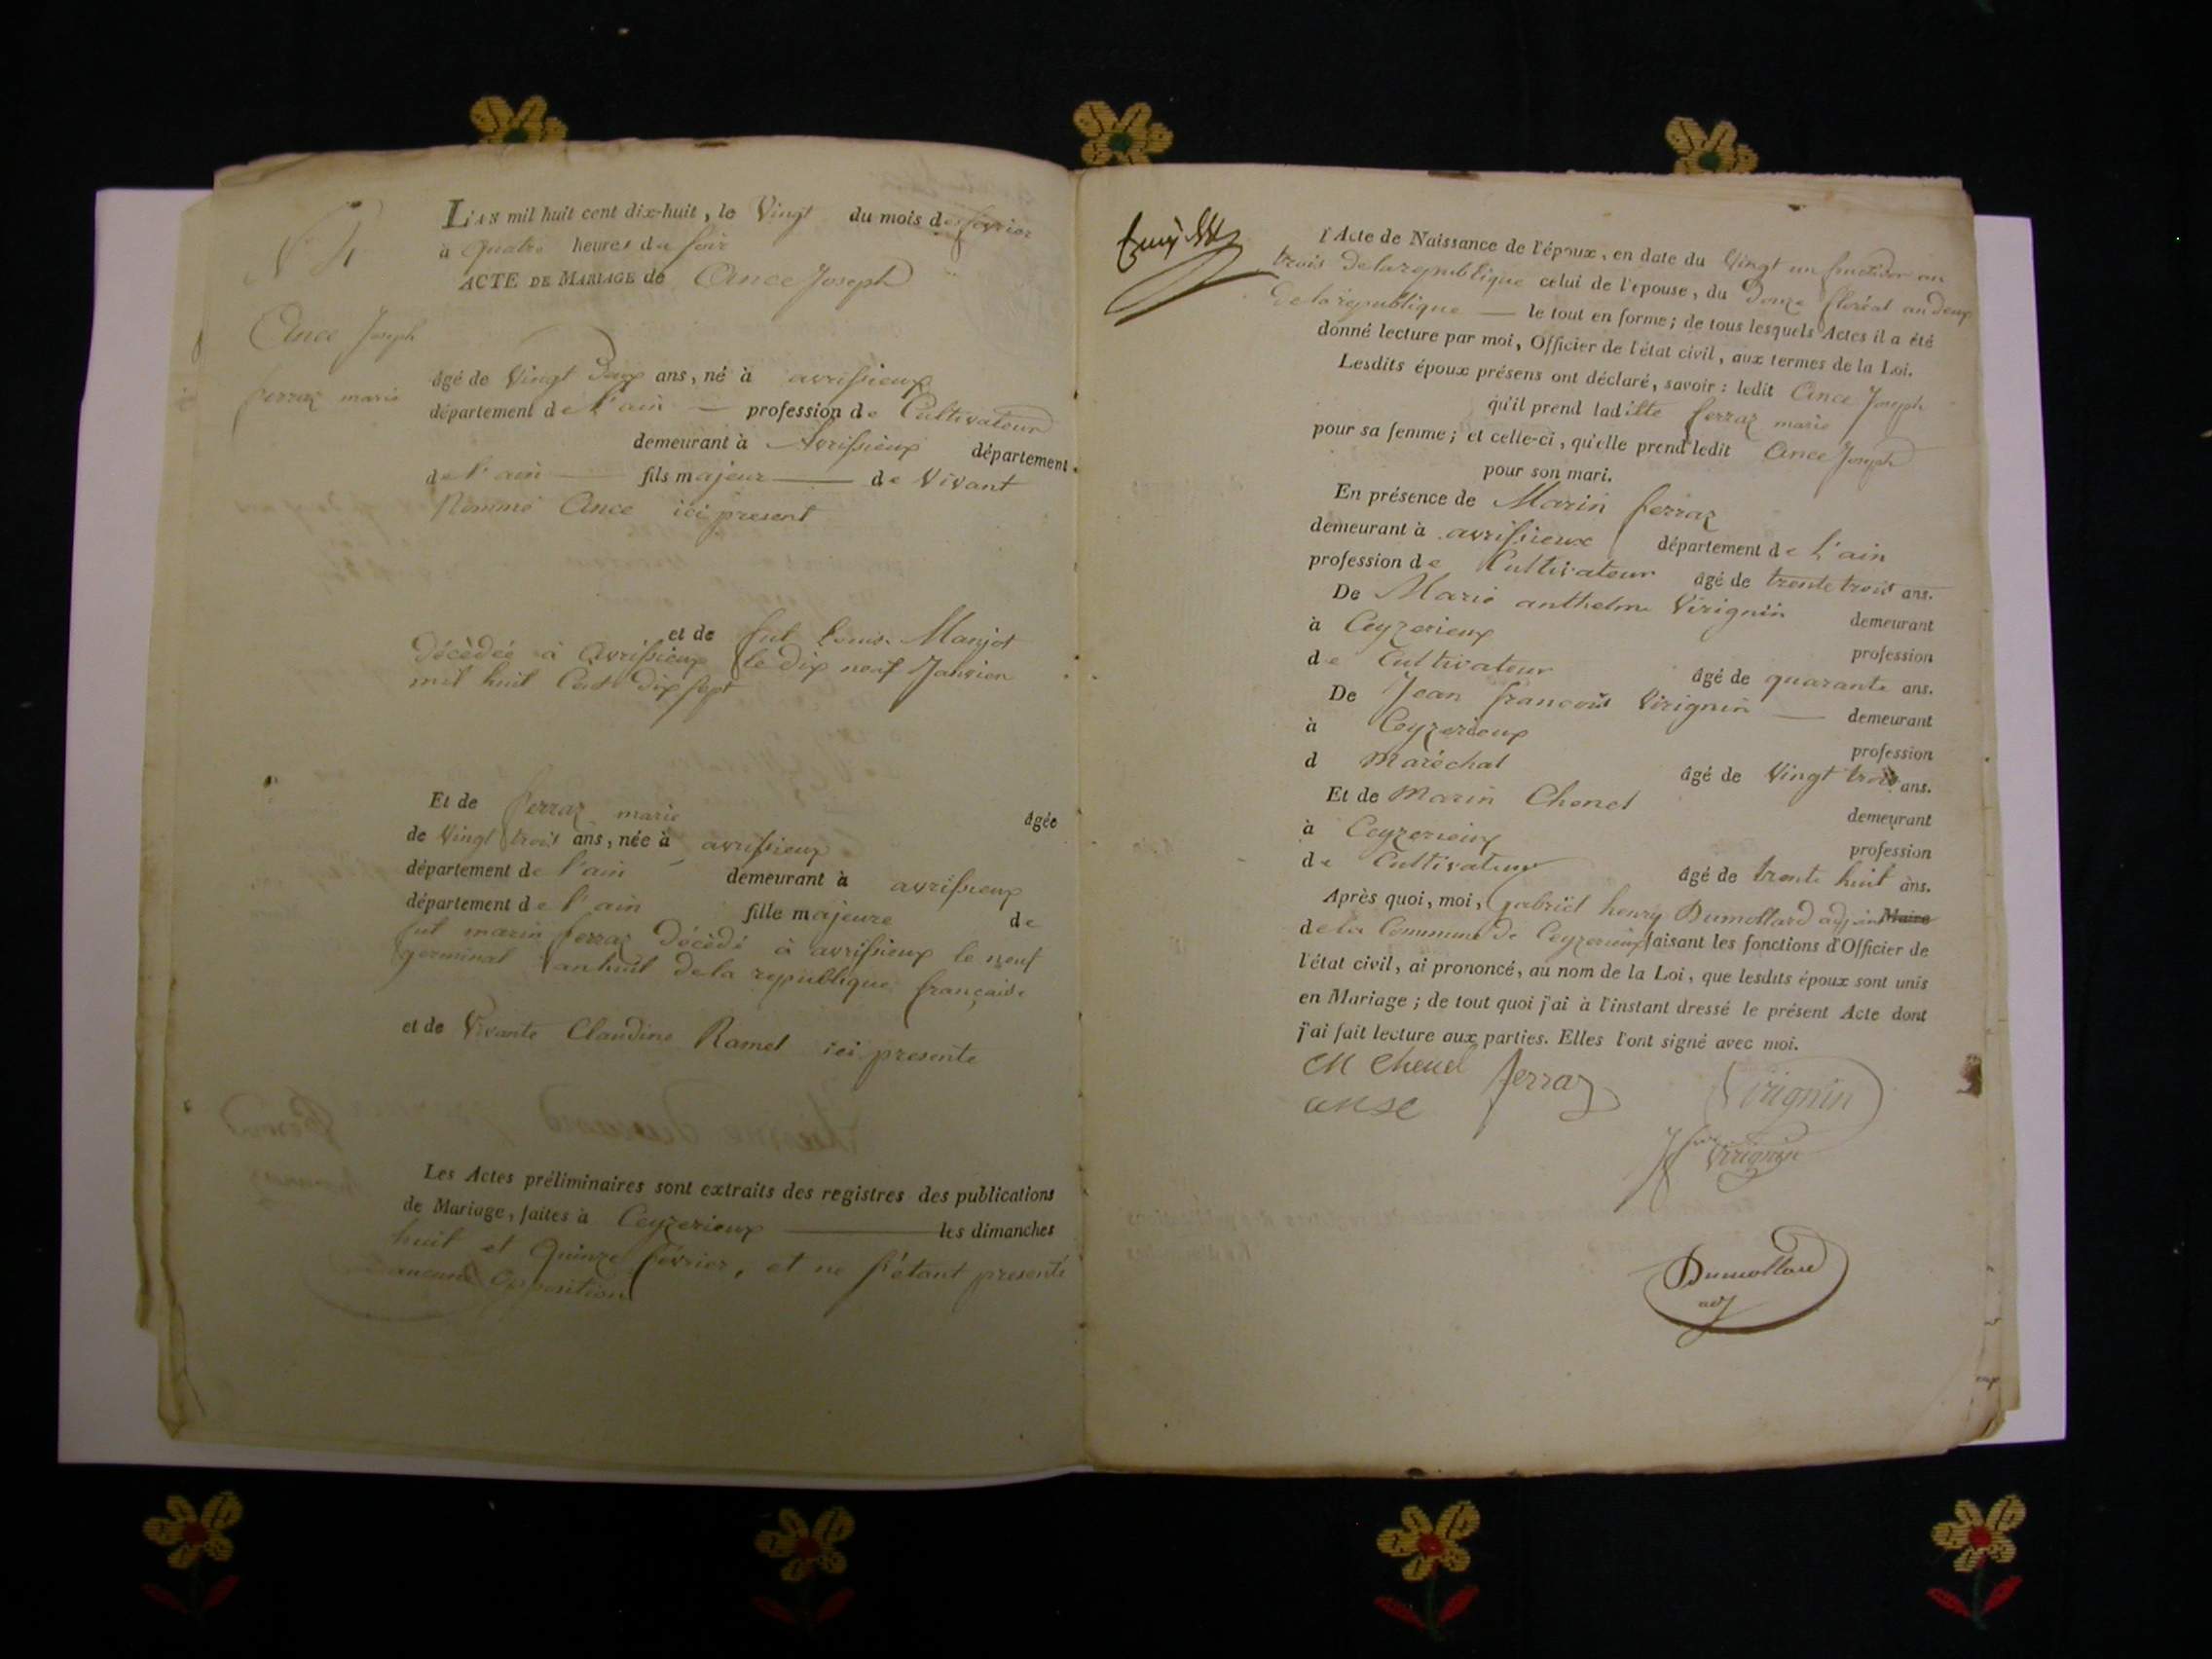 N° 4
Ance Joseph
ferraz marie
L'AN mil huit cent dix-huit, le Vingt du mois de fevrier
à quatre heures du soir
ACTE DE MARIAGE de Ance Joseph
âgé de Vingt deux ans, né à avrissieux
département de l'ain — profession de Cultivateur
demeurant à Avrissieux département
de l'ain — fils majeur — de Vivant
Ance ici present
et de fut Manjot
décèdée à avrissieux le dix neuf Janvier
mil huit Cent dix sept
Et de ferraz marie âgée
de Vingt trois ans, née à avrissieux
département de l'ain demeurant à avrissieux
département de l'ain fille majeure de
fut marin ferraz décèdé à avrissieux le neuf
germinal an huit de la republique française
et de Vivante Claudine Ramel ici presente
Les Actes préliminaires sont extraits des registres des publications
de Mariage, faites à Ceyzerieux — les dimanches
huit et Quinze fevrier, et ne s'étant presenté
aucune opposition
l'Acte de Naissance de l'époux, en date du Vingt un fructidor an
trois de la republique celui de l'épouse, du Douze floréal an deux
de la republique — le tout en forme; de tous lesquels Actes il a été
donné lecture par moi, Officier de l'état civil, aux termes de la Loi.
Lesdits époux présens ont déclaré, savoir: ledit Ance Joseph
qu'il prend laditte ferraz marie
pour sa femme; et celle-ci, qu'elle prend ledit Ance Joseph
pour son mari.
En présence de Marin ferraz
demeurant à avrissieux département de l'ain
profession de Cultivateur âgé de trente trois ans.
De Marie anthelme Virignin demeurant
à Ceyzerieux profession
de Cultivateur âgé de quarante ans.
De Jean francois Virignin — demeurant
à Ceyzerieux profession
d Maréchal âgé de Vingt trois ans.
Et de Marin Chenel demeurant
à Ceyzerieux profession
de Cultivateur âgé de trente huit ans.
Après quoi, moi, Gabriel henry Dumollard adjoint Maire
de la Commune de Ceyzerieux faisant les fonctions d'Officier de
l'état civil, ai prononcé, au nom de la Loi, que lesdits époux sont unis
en Mariage; de tout quoi j'ai à l'instant dressé le présent Acte dont
j'ai fait lecture aux parties. Elles l'ont signé avec moi.
M chenel ferraz Virignin
anse
Virignin
Dumollard
adj